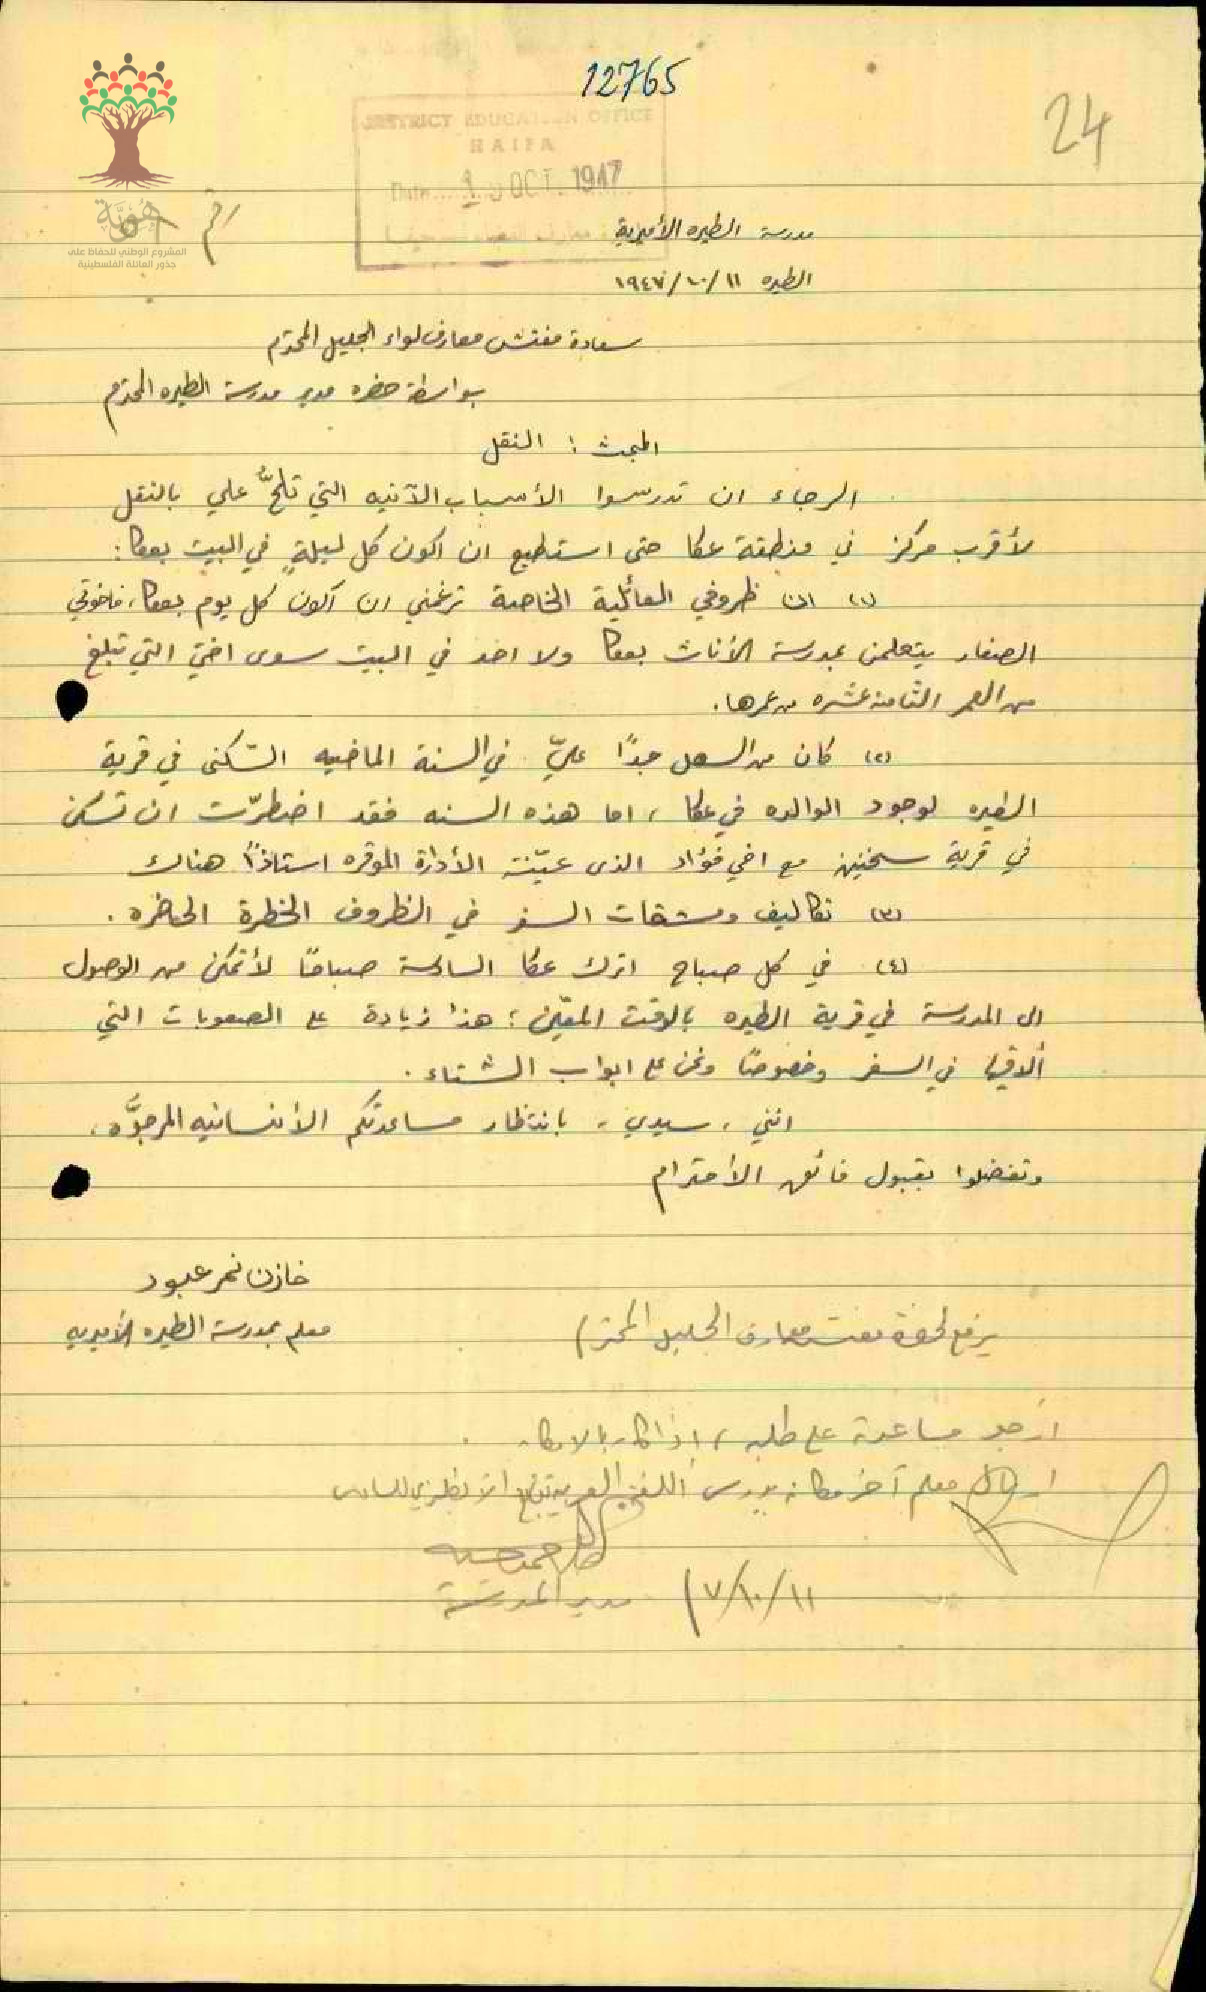 12765
24
DISTRICT EDUCATION OFFICE
HAIFA
Date 1 OCT. 1947
هُوِيَّة
المشروع الوطني للحفاظ على
جذور العائلة الفلسطينية
رقم
مدرسة الطيره الأميرية
الطيره ١١/١٠/١٩٤٧
سعادة مفتش معارف لواء الجليل المحترم
بواسطة حضرة مدير مدرسة الطيره المحترم
المبحث : النقل
الرجاء ان تدرسوا الأسباب الآتيه التي تلحُّ علي بالنقل
لأقرب مركز في منطقة عكا حتى استطيع ان اكون كل ليلةٍ في البيت بعكا:
(١) ان ظروفي العائلية الخاصة ترغمني ان أكون كل يوم بعكا، فاخوتي
الصغار يتعلمن بمدرسة الأناث بعكا ولا احد في البيت سوى اختي التي تبلغ
من العمر الثامنة عشره من عمرها.
(٢) كان من السهل جدًا عليّ في السنة الماضيه السّكنى في قرية
الطيره لوجود الوالده في عكا، اما هذه السنه فقد اضطرّت ان تسكن
في قرية سخنين مع اخي فؤاد الذى عيّنته الأدارة الموقره استاذًا هناك
(٣) تكاليف ومشقات السفر في الظروف الخطرة الحاضره.
(٤) في كل صباح اترك عكا السادسة صباحًا لأتمكن من الوصول
الى المدرسة في قرية الطيره بالوقت المعيّن؛ هذا زيادة على الصعوبات التي
ألاقيها في السفر وخصوصًا ونحن على ابواب الشتاء.
انني، سيدي، بانتظار مساعدتكم الأنسانيه المرجوَّه،
وتفضلوا بقبول فائق الأحترام
خازن نمر عبود
معلم بمدرسة الطيره الأميريه
يرفع لحضرة مفتش معارف الجليل المحترم
ارجو مساعدته على طلبه، اذا كان بالامكان
ارسال معلم آخر مكانه يدرس اللغتين العربية والانكليزي للسادس
مدير المدرسة
١١/١٠/٧